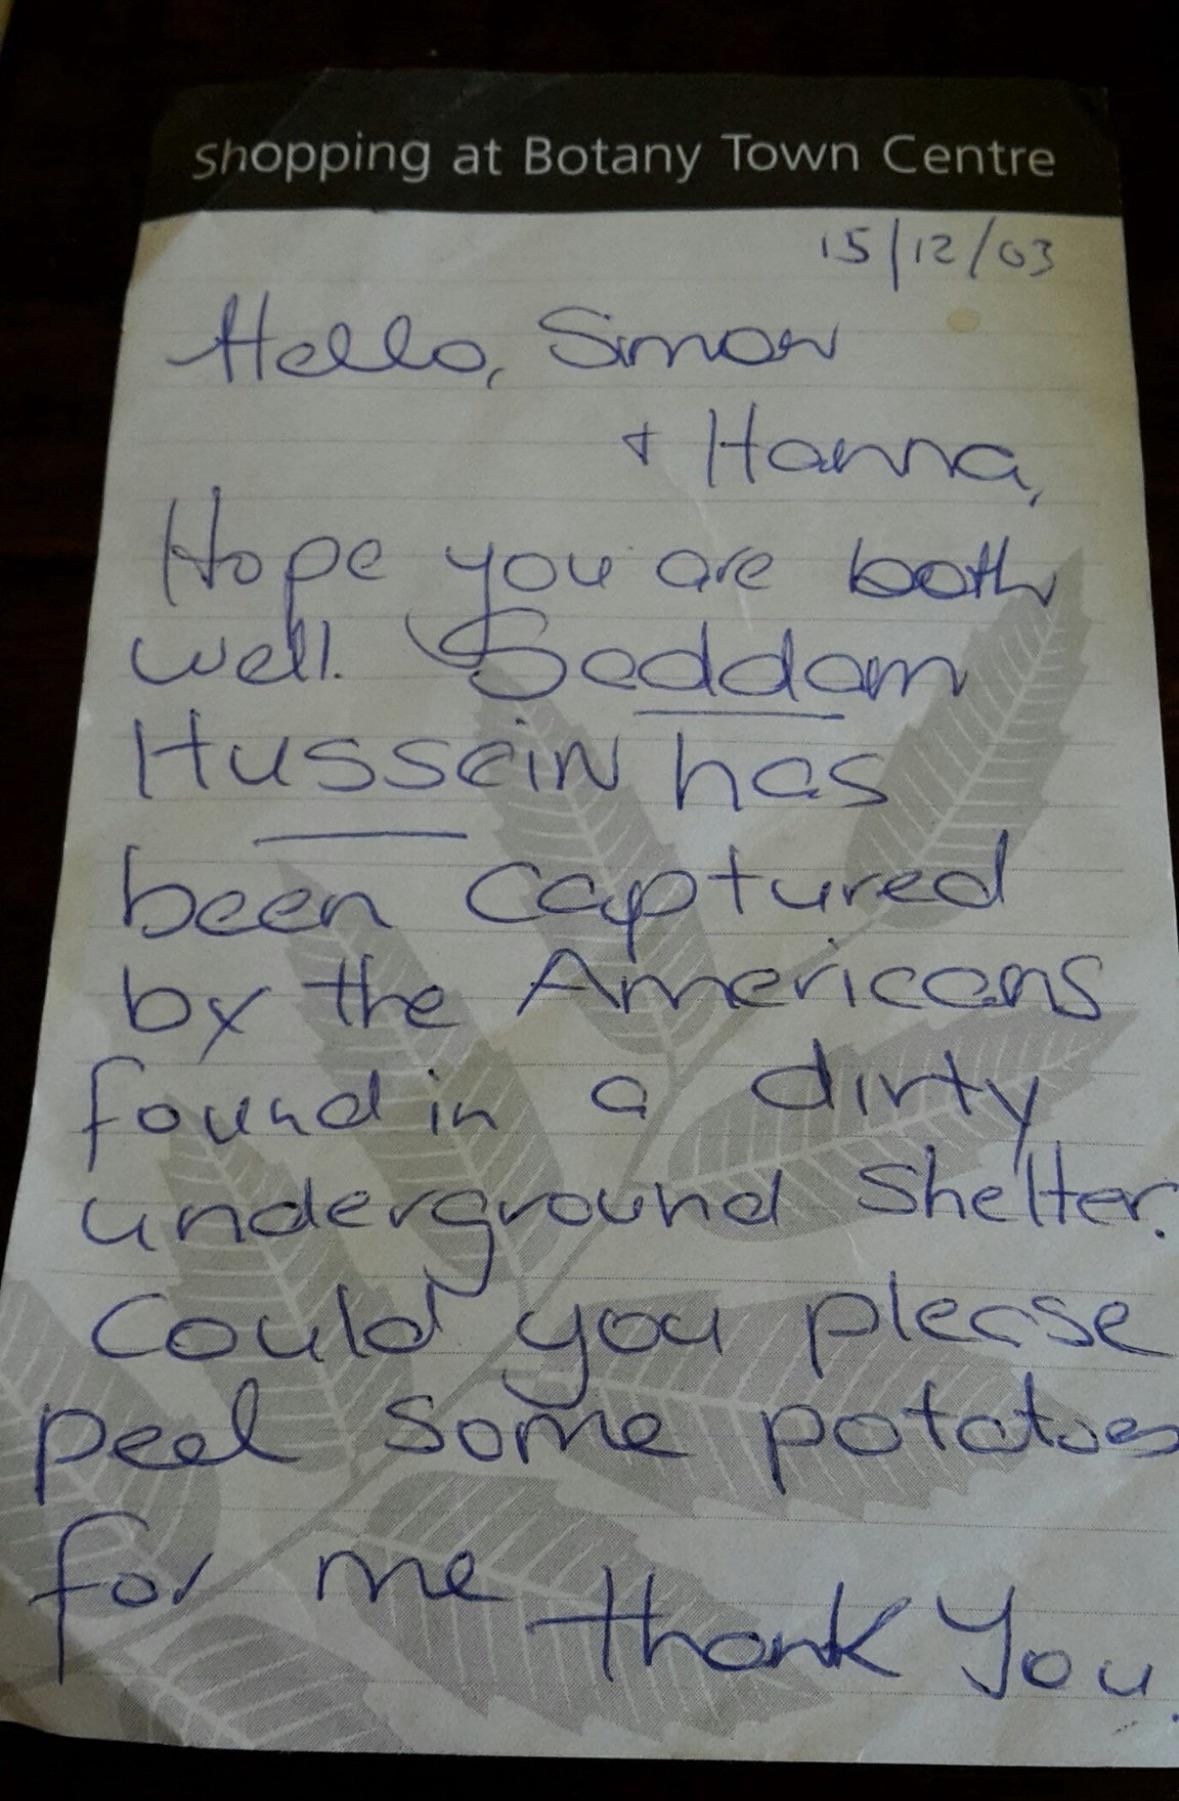 Shopping at Botany Town Centre
15/12/03
Hello, Simon
+ Hanna,
Hope you are both
well. Saddam
Hussein has
been captured
by the Americans
found in a dirty
underground Shelter.
Could you please
peel some potatoes
for me thank You.